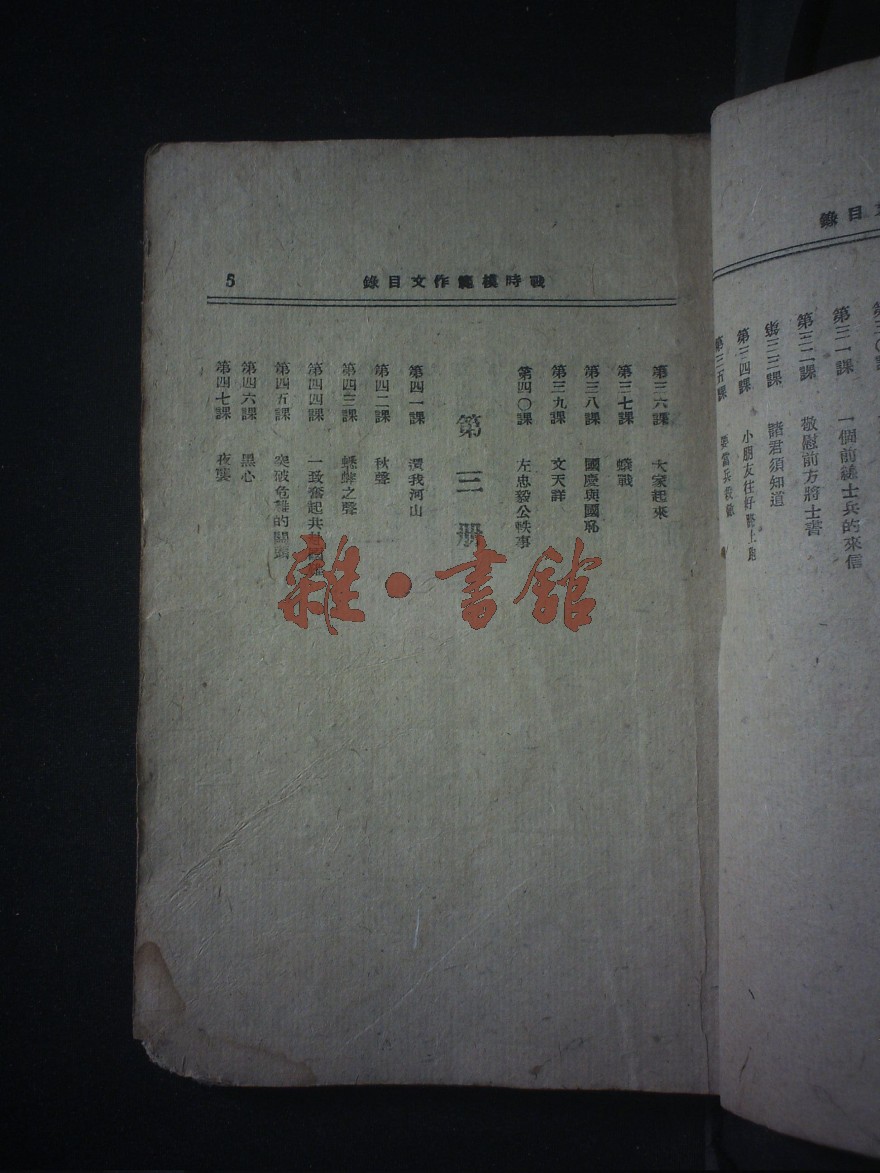 錄目文
第三一課　一個前綫士兵的來信
第三二課　敬慰前方將士書
第三三課　諸君須知道
第三四課　小朋友往好路上跑
第三五課
戰時模範作文目錄
5
第三六課　大家起來
第三七課　蟻戰
第三八課　國慶與國恥
第三九課　文天祥
第四〇課　左忠毅公軼事
第三册
第四一課　還我河山
第四二課　秋聲
第四三課　蟋蟀之聲
第四四課　一致奮起共
第四五課　突破危難的關頭
第四六課　黑心
第四七課　夜襲
雜·書館